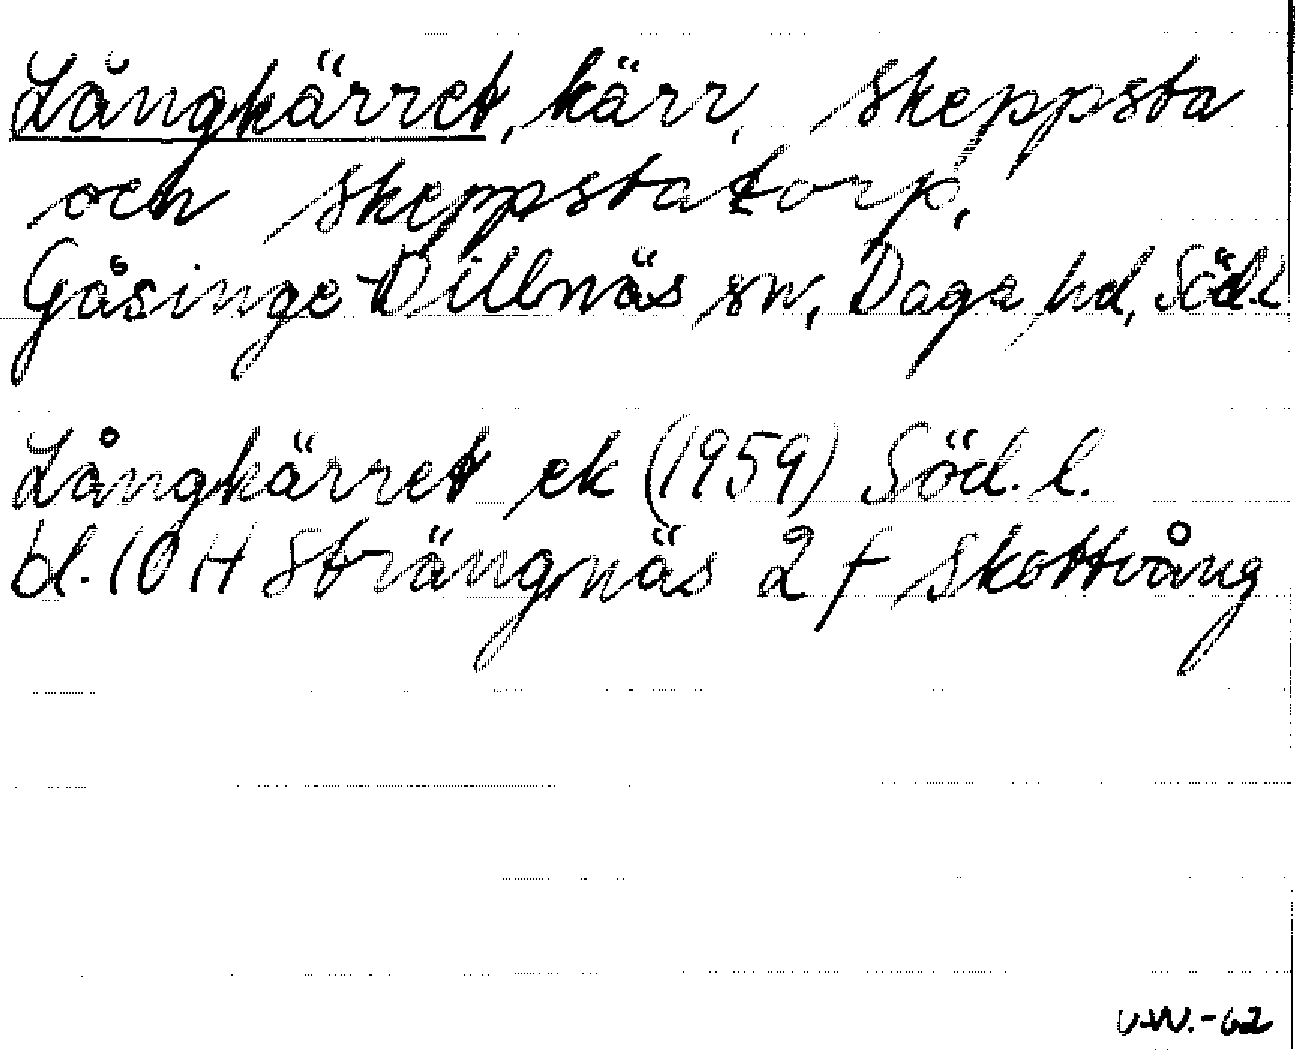 Långkärret, kärr, Skeppsta
och Skeppstatorp,
Gåsinge-Dillnäs sn, Daga hd, Söd.l
Långkärret ek (1959) Söd. l.
bl. 10 H Strängnäs 2 f Skottvång
U.W.-62